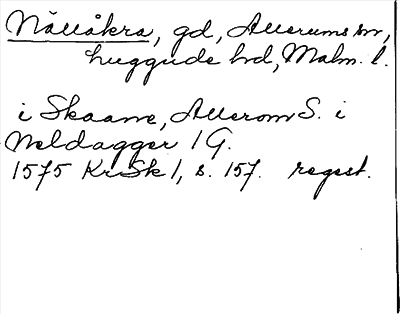 Nällåkra, gd, Allerums sn,
Luggude hd, Malm. l.
i Skaane, Allerom S. i
Meldagger 1 G.
1575 KrSk 1, s. 157. regest.